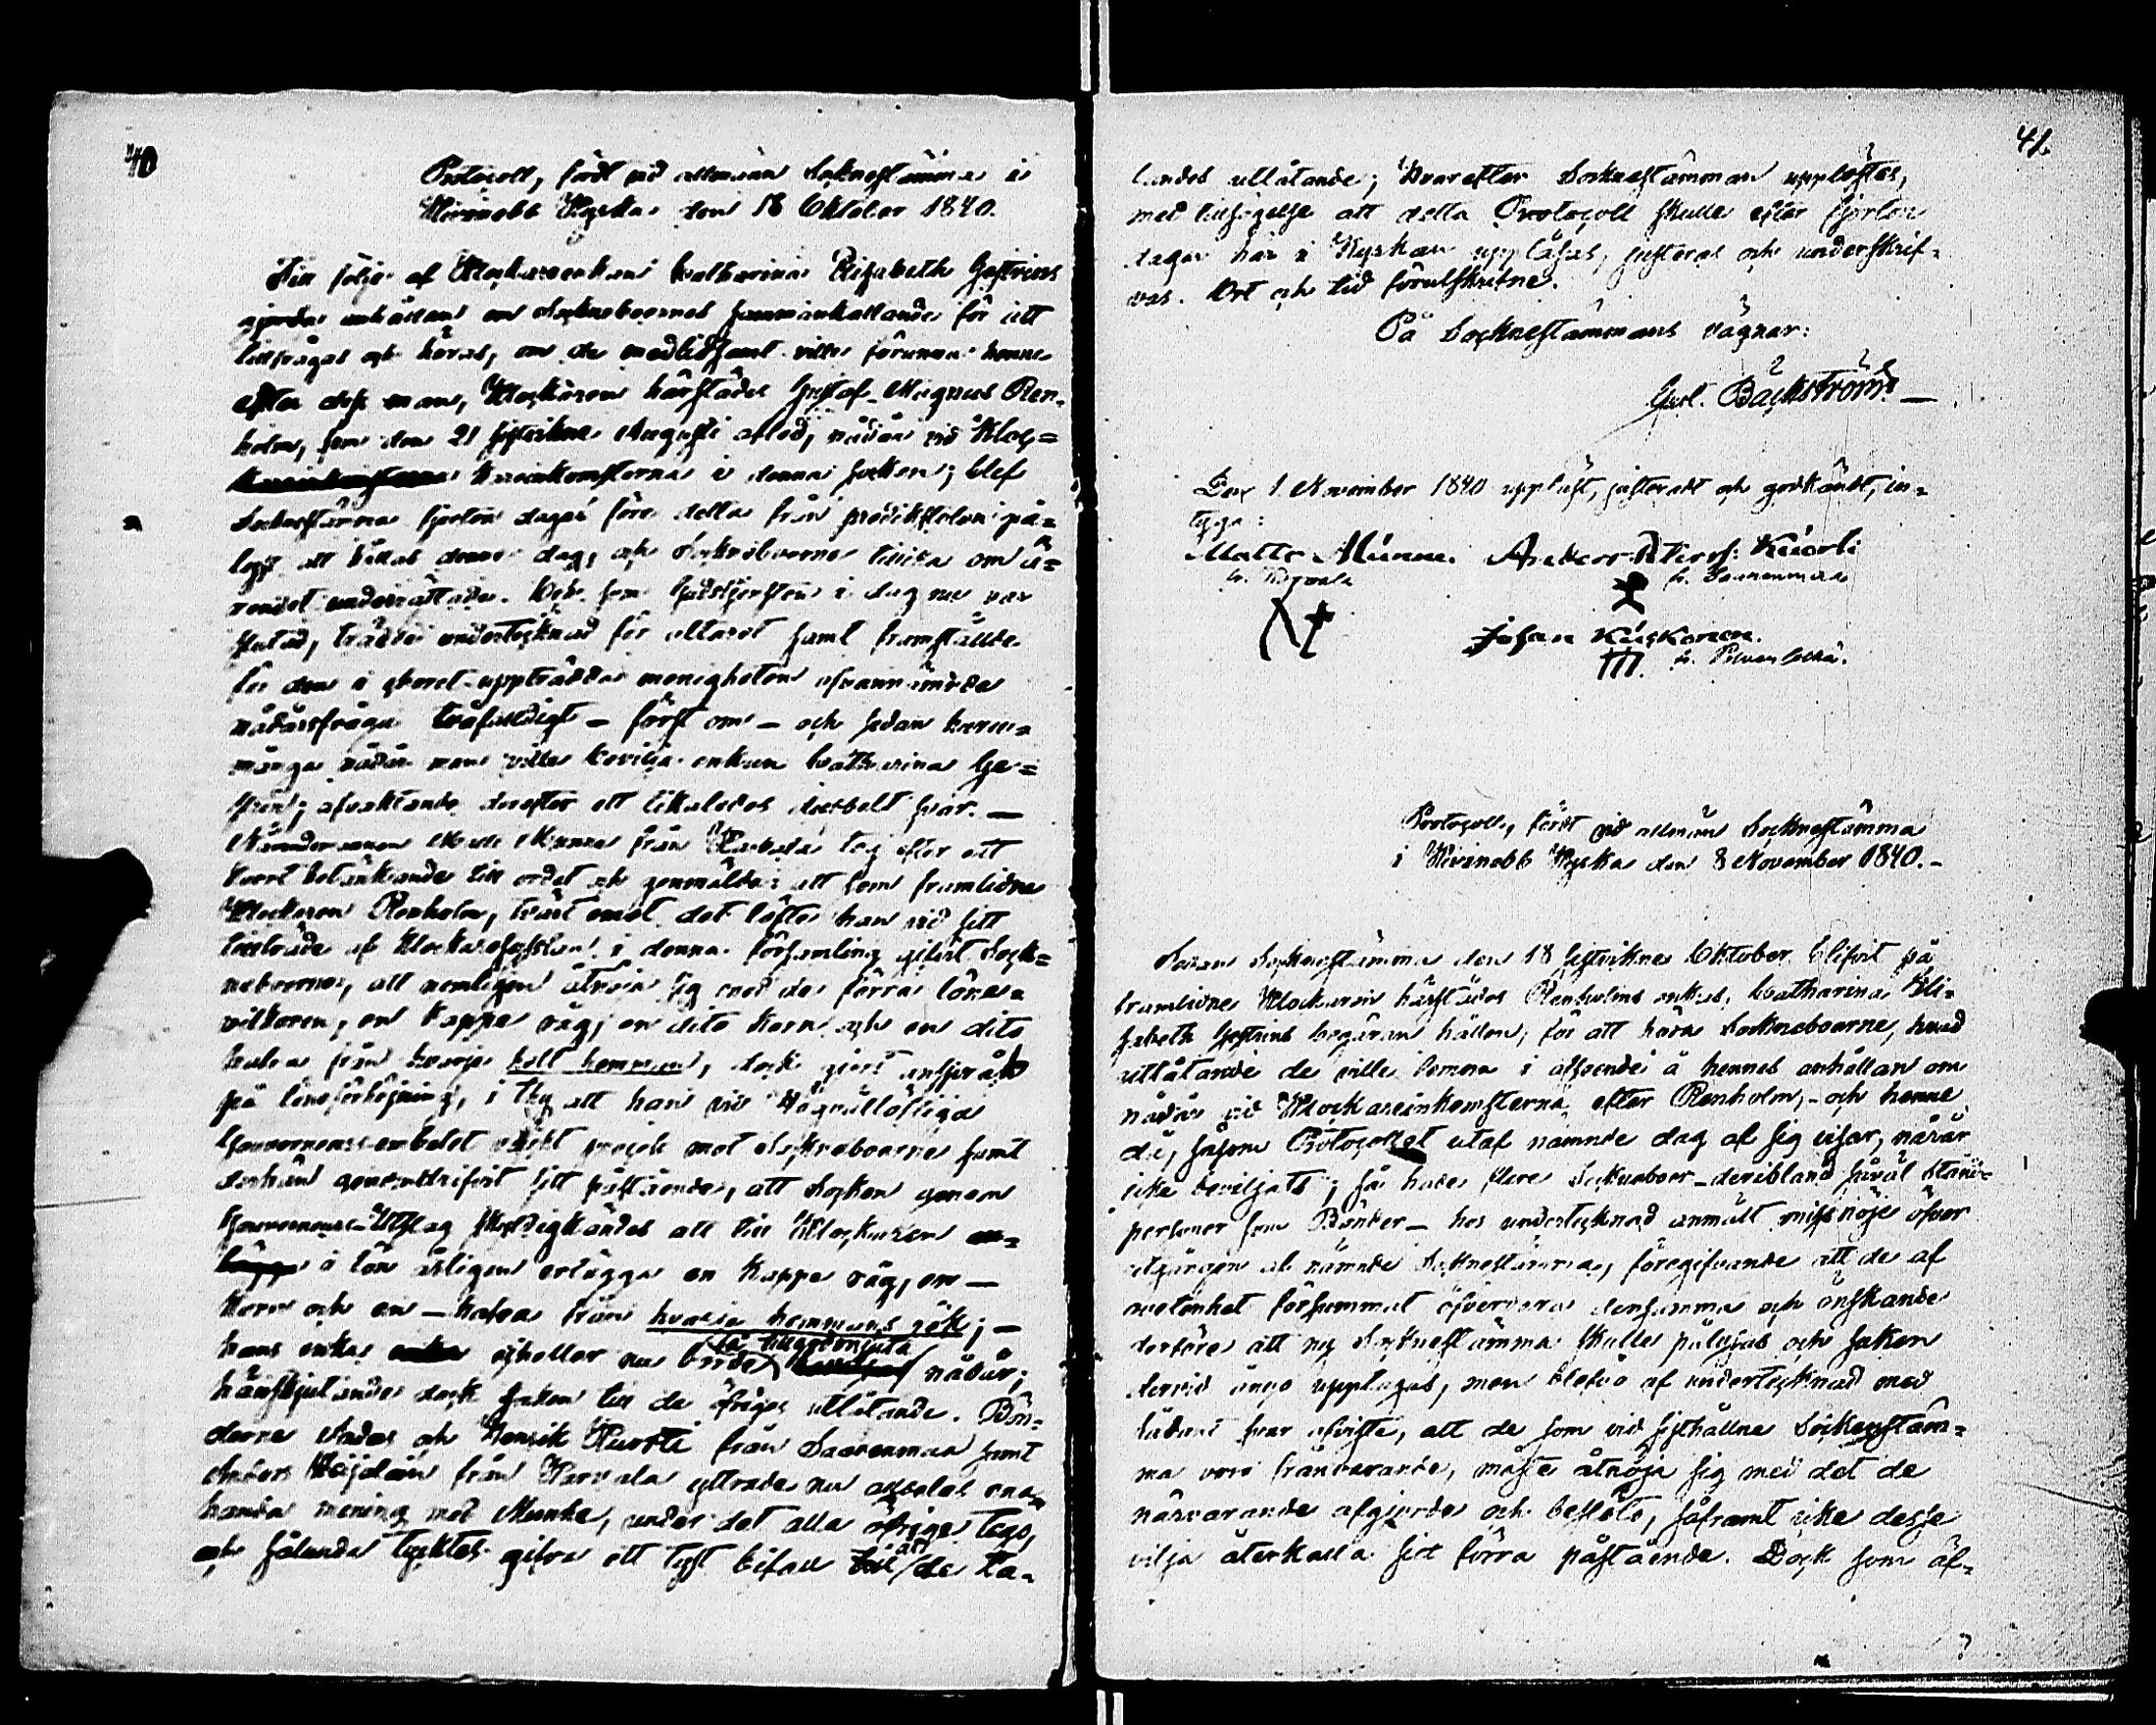 40
Protocoll, fördt vid allmän Soknestämma i
Kivinebb Kyrka den 18 Oktober 1840.
Till följe af Klockareenkans Catharina Elisabeth Gestrins
gjorda anhållan om Sockneboernes sammankallande för att
tillfrågas och höras, om de medlidsamt ville förunna henne
efter dess man, Klockaren härstädes Gustaf Magnus Ren-
holm, som den 21 sistvikne Augusti afled, nådår vid Kloc-
kareinkomsterna i denna socken; blef
Socknestämma fjorton dagar före detta från predikstolen på-
lyst att hållas denna dag, och Socknoboerne tillika om ä-
rendet underrättade. Och som Gudstjensten i dag nu var
slutad, trädde undertecknad för altaret samt framställde
för den i choret uppträdda menigheten ofvannämnda
nådårsfråga tvåfaldigt – först om – och sedan huru
många nådår man ville bevilja enkan Catharina Ge-
strin; afvaktande derefter ett likaledes dubbelt svar. —
Nämndemannen Matts Munne från tog efter ett
kort betänkande till ordet och genmälde: att som framlidne
Klockaren Renholm, tvärt emot det löfte han vid sitt
tillträde af Klockaresysslan i denna församling gifvit Sock-
neboerne, att nemligen åtnöja sig med de förra löne-
vilkoren, en kappe råg, en dito korn och en dito
hafra från hvarje helt hemman, dock gjort anspråk
på löneförhöjning, i thy att han vid Högvällofliga
Gouvernemes-embetet väckt process mot Socknoboerne samt
derhän genomdrifvit sitt påstående, att Socken genom
Gouvernemes-Utslag skuldigkändes att till Klockaren
i lön årligen erlägga en kappe råg, en —
korn och en — hafra från hvarje hemmans rök; —
hans enka ej heller nu borde nådår;
hänskjutande dock saken till de öfriges utlåtande. Bön-
derne och Henrik Kuorti från Saarenmaa samt
Anders från yttrade nu ena-
handa mening med Munne, under det alla öfrige tego,
och sålunda tycktes gifva ett tyst bifall till de ta-
41.
landes utlåtande; hvarefter Socknestämman upplöstes,
med tillsägelse att detta Protocoll skulle efter fjorton
dagar här i Kyrkan uppläsas, justeras och underskrif-
vas. Ort och tid förutskrifne.
På Socknestämmans vägnar:
Gust. Bäckström. —
Den 1 November 1840 uppläst, justeradt och godkändt, in-
tyga:
Matts Munne. Anders Kuorti
fr. Saarenmaa
Johan Kiiskonen.
fr.
Protocoll, fördt vid allmän Socknestämma
i Kivinebb Kyrka den 8 November 1840. –
Sedan Socknestämma den 18 sistvikne Oktober blifvit på
framlidne Klockaren härstädes Renholms enkas, Catharina Eli-
sabeth Gestrins begäran hållen, för att höra Socknoboerne, hvad
utlåtande de ville lemna i afseende å hennes anhållan om
nådår vid Klockareinkomsterna efter Renholm, – och henne
då, såsom Protocollet utaf nämnde dag af sig visar, nådår
icke beviljats; så hade flere Socknoboer – deribland såväl Stånds-
personer som Bönder – hos undertecknad anmält missnöje öfver
utgången af nämnde Socknestämma, föregifvande att de af
ovetenhet försummat öfvervara densamma och önskande
derföre att ny Socknestämma skulle pålysas och saken
dervid ånyo upptagas, men blefvo af undertecknad med
sådant svar afviste, att de som vid sisthållne Sockenstäm-
ma voro frånvarande, måste åtnöja sig med det de
närvarande afgjorde och beslöto, såframt icke desse
vilja återkalla sitt förra påstående. Dock som äf-